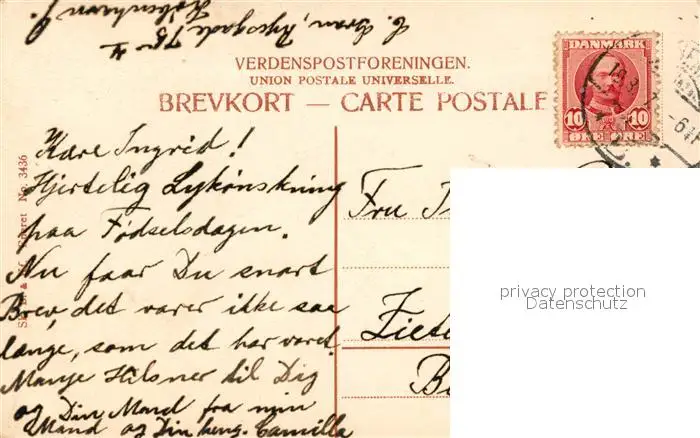 København
VERDENSPOSTFORENINGEN.
UNION POSTALE UNIVERSELLE.
BREVKORT — CARTE POSTALE
DANMARK
10 10
ØRE ØRE
No. 3436
Kære Ingrid!
Hjertelig Lykønskning
paa Fødselsdagen.
Nu faar Du snart
Brev, det varer ikke saa
længe, som det har varet.
Mange Hilsner til Dig
og Din Mand fra min
Mand og Din heng. Camilla
Fru
privacy protection
Datenschutz